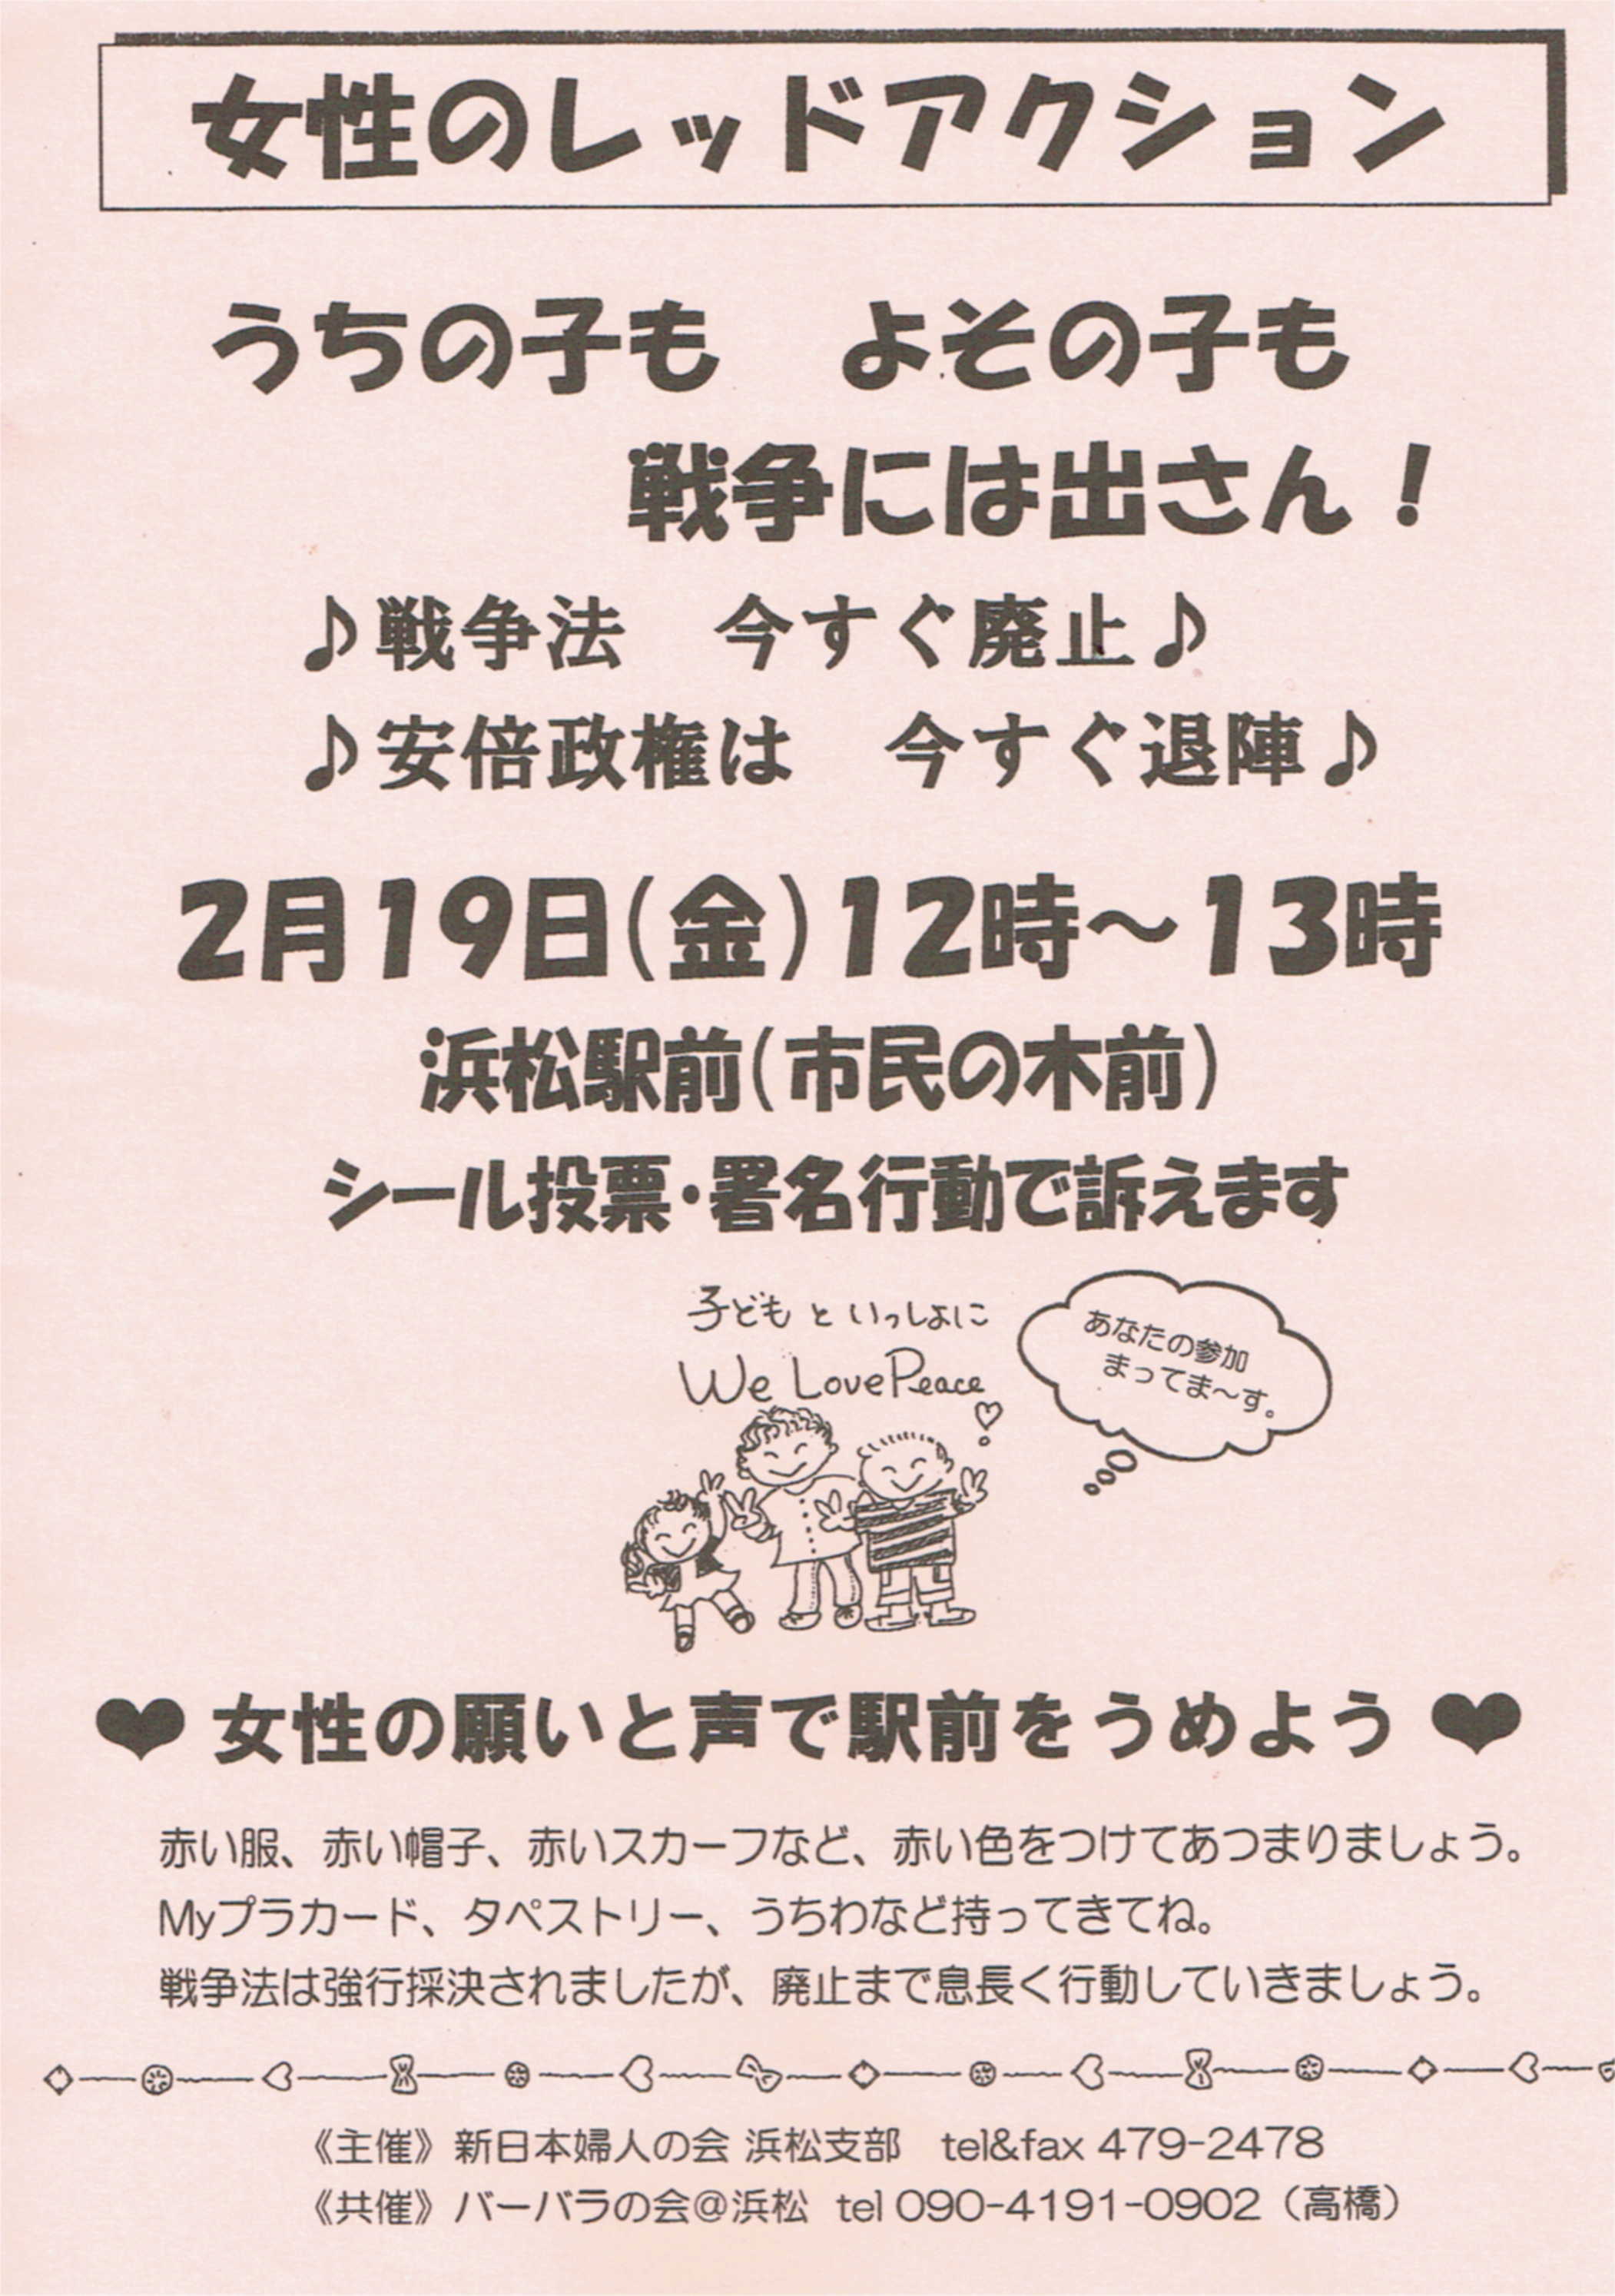 女性のレッドアクション
うちの子も　よその子も
戦争には出さん！
♪戦争法　今すぐ廃止♪
♪安倍政権は　今すぐ退陣♪
2月19日(金)12時～13時
浜松駅前(市民の木前)
シール投票・署名行動で訴えます
子どもといっしょに
We Love Peace
あなたの参加
まってま～す。
❤女性の願いと声で駅前をうめよう❤
赤い服、赤い帽子、赤いスカーフなど、赤い色をつけてあつまりましょう。
Myプラカード、タペストリー、うちわなど持ってきてね。
戦争法は強行採決されましたが、廃止まで息長く行動していきましょう。
《主催》新日本婦人の会 浜松支部　tel&fax 479-2478
《共催》バーバラの会@浜松　tel 090-4191-0902（高橋）